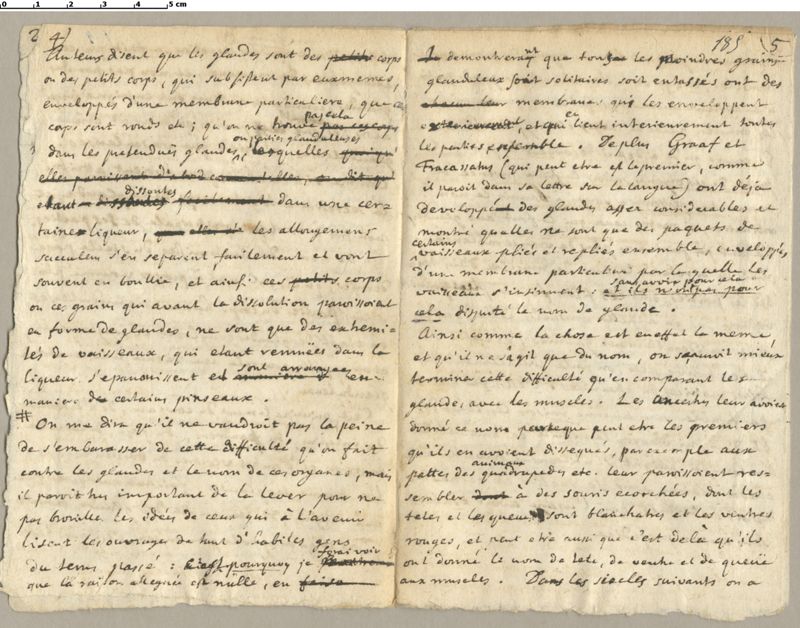 0 1 2 3 4 5 cm
2 4
Auteurs disent que les glandes sont des petits corps
ou des petits corps, qui subsistent par euxmemes,
enveloppés d'une membrane particuliere, que ces
par cela
corps sont ronds etc; qu'on ne trouve pas ces corps
ou parties glanduleuses
dans les pretendues glandes, lesquelles
elles paroissent d'abord
dissoutes
etant dissoutes facilement dans une cer-
taine liqueur, les allongemens
succulens s'en separent facilement et vont
souvent en bouillie, et ainsi ces petits corps
ou ces grains qui avant la dissolution paroissoient
en forme de glandes, ne sont que des extremi-
tés de vaisseaux, qui etant remuées dans la
sont arrangées
liqueur s'epanouissent et en
maniere de certains pinseaux.
# On me dira qu'il ne vaudroit pas la peine
de s'embarasser de cette difficulté qu'on fait
contre les glandes et le nom de ces organes, mais
il paroit tres important de la lever pour ne
pas brouiller les idées de ceux qui à l'avenir
lisent les ouvrages de tant d'habiles gens
ferai voir
du tems passé : c'est pourquoy je
que la raison alleguée est nulle, en
185 5
demontrerant que toutes les moindres grains
glanduleux soit solitaires soit entassés ont des
membranes qui les enveloppent
exterieurement, et qui lient interieurement toutes
les parties ensemble. De plus Graaf et
Fracassatus (qui peut etre est le premier, comme
il paroit dans sa lettre sur la langue) ont déja
developpé des glandes assez considerables et
montré qu'elles ne sont que des paquets de
certains
vaisseaux pliés et repliés ensemble, enveloppés
d'une membrane particuliere par laquelle les
sans avoir pour cela
vaisseaux s'insinuent : et ils n'ont pas pour
cela disputé le nom de glande.
Ainsi comme la chose est en effet la meme,
et qu'il ne s'agit que du nom, on scauroit mieux
terminer cette difficulté qu'en comparant les
glandes avec les muscles. Les ancestres leur avoient
donné ce nom parceque peut etre les premiers
qu'ils en avoient dissequés, par exemple aux
animaux
pattes des quadrupedes etc. leur paroissoient res-
sembler à des souris ecorchées, dont les
tetes et les queues sont blanchatres et les ventres
rouges, et peut etre aussi que c'est delà qu'ils
ont donné le nom de tete, de ventre et de queüe
aux muscles. Dans les siecles suivants on a